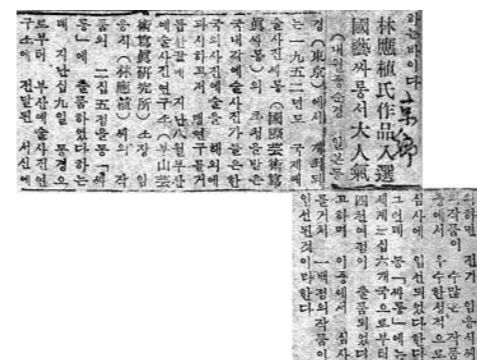 하는바이다
林應植氏作品入選
國藝싸롱서大人氣
경(東京)에서 개최되
는 一九五二년도 국제예
술사진싸롱(國際芸術寫
眞싸롱)의 초청을받은
국내각예술사진가들은한
국의사진예술을 해외에
과시하고저
지난八월부산
예술사진연구소(부山芸
術寫眞研究所)소장 임
응식(林應植)씨의 작
품의 二십五점을통「싸
롱」에 출품하였다하는
데 지난십九일 동경으
로부터 부산예술사진연
구소에 전달된 서신에
의하면 전기 임응식씨
의작품이 수많은 작품
중에서 우수한성적으로
심사에 입선되었다한다
그런데 동「싸롱」에는
세계二십六개국으로부터
四천여점이 출품되었다
고하며 이중에서 심사
를거처 一백점의작품이
입선된것이라한다